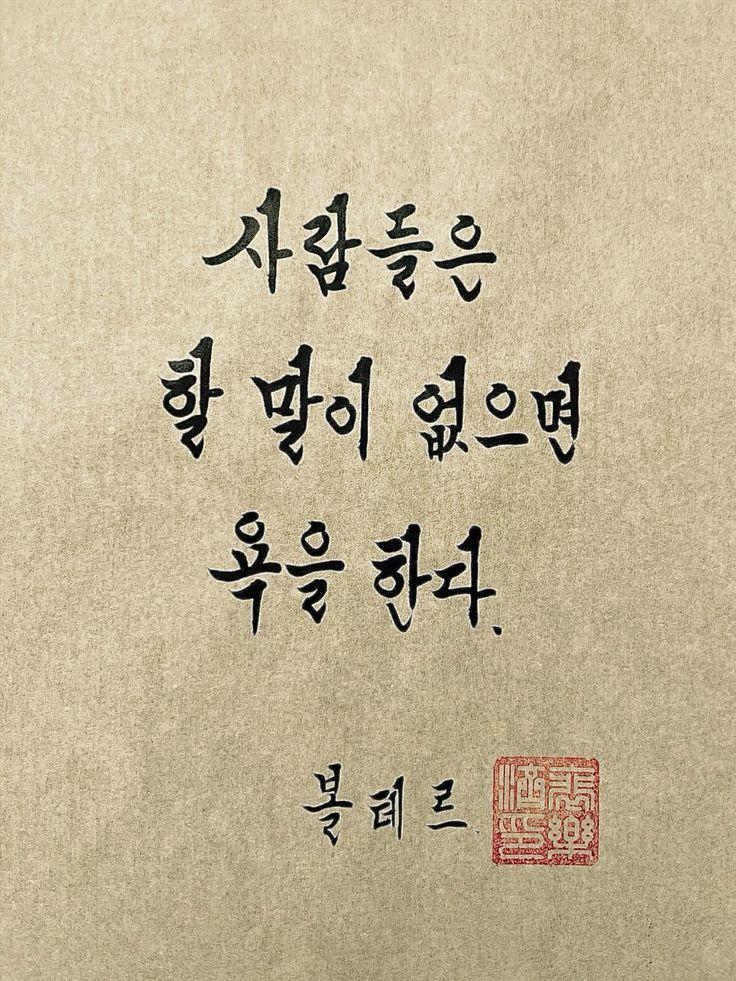 사람들은
할 말이 없으면
욕을 한다.
볼테르.